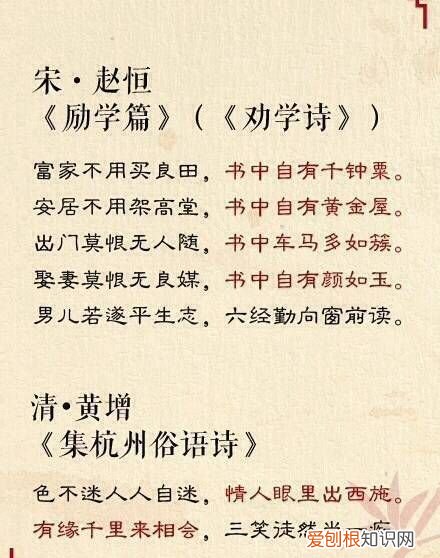 宋·赵恒
《励学篇》(《劝学诗》)
富家不用买良田，书中自有千钟粟。
安居不用架高堂，书中自有黄金屋。
出门莫恨无人随，书中车马多如簇。
娶妻莫恨无良媒，书中自有颜如玉。
男儿若遂平生志，六经勤向窗前读。
清·黄增
《集杭州俗语诗》
色不迷人人自迷，情人眼里出西施。
有缘千里来相会，三笑徒然当一痴
爱刨根知识网
www.baogen.com